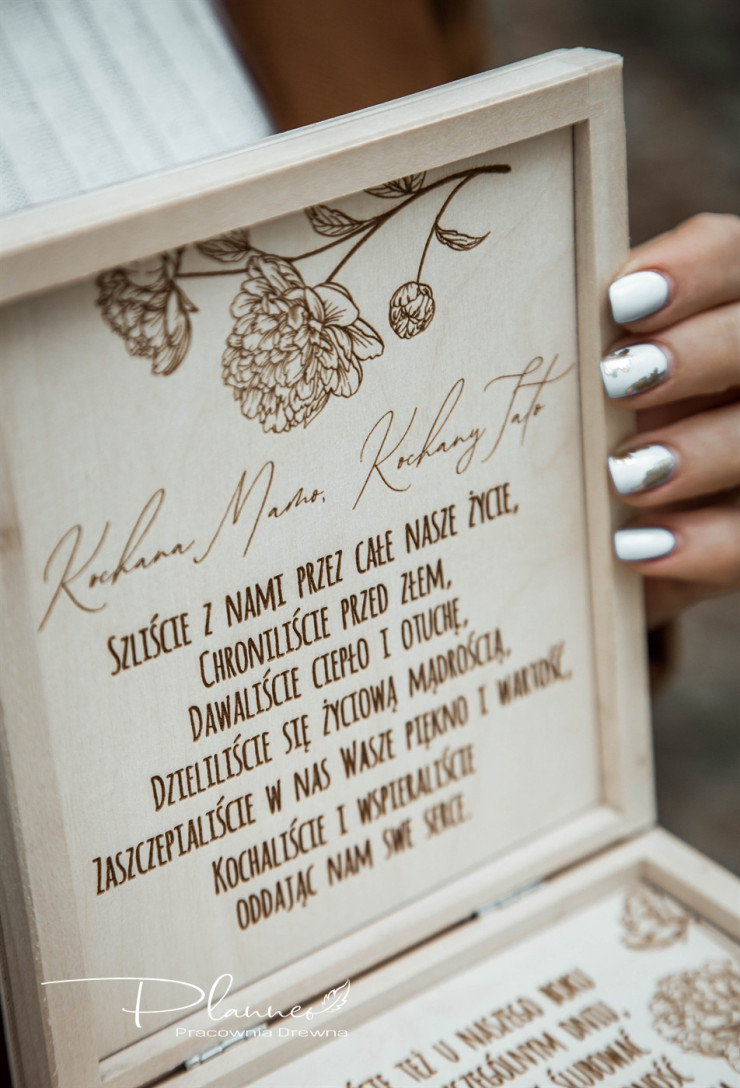 Kochana Mamo, Kochany Tato
SZLIŚCIE Z NAMI PRZEZ CAŁE NASZE ŻYCIE,
CHRONILIŚCIE PRZED ZŁEM,
DAWALIŚCIE CIEPŁO I OTUCHĘ,
DZIELILIŚCIE SIĘ ŻYCIOWĄ MĄDROŚCIĄ,
ZASZCZEPIALIŚCIE W NAS WASZE PIĘKNO I WARTOŚĆ,
KOCHALIŚCIE I WSPIERALIŚCIE
ODDAJĄC NAM SWE SERCE.
TEŻ U NASZEGO BOKU
DNIU,
Planneo
Pracownia Drewna